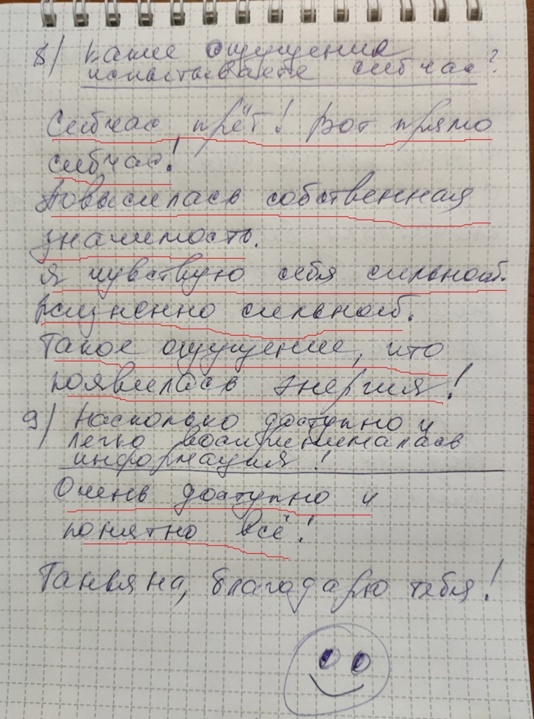 8) Какие ощущения
испытываете сейчас?
Сейчас прёт! Вот прямо
сейчас!
Повысилась собственная
значимость.
Я чувствую себя сильной.
Жизненно сильной.
Такое ощущение, что
появилась энергия!
9) Насколько доступно и
легко воспринималась
информация!
Очень доступно и
понятно всё!
Татьяна, благодарю тебя!